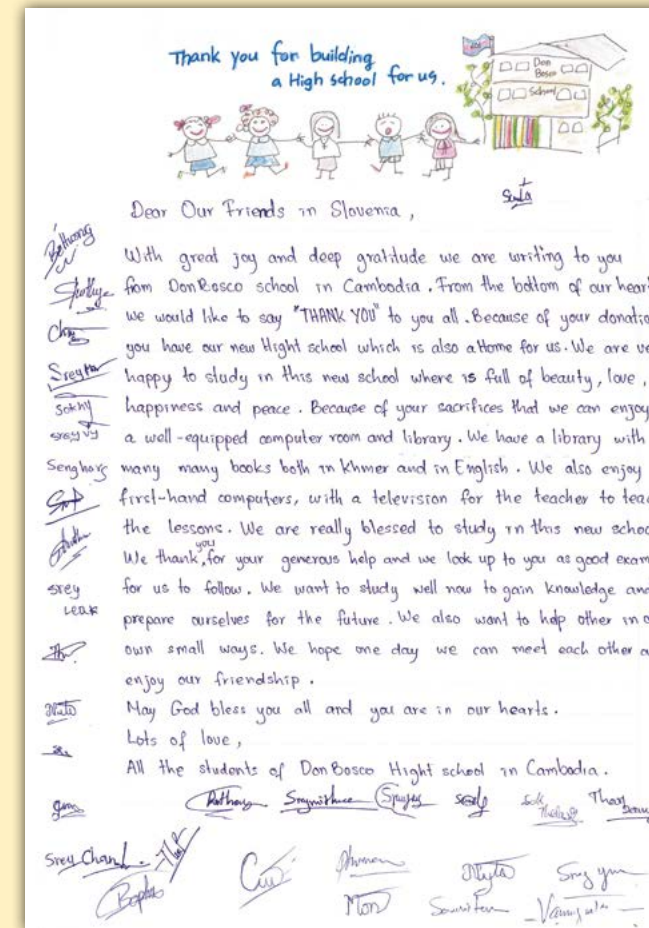 Thank you for building
a High school for us.
Don
Bosco
School
Dear Our Friends in Slovenia,
With great joy and deep gratitude we are writing to you
from Don Bosco school in Cambodia. From the bottom of our heart
we would like to say "THANK YOU" to you all. Because of your donatio
you have our new Hight school which is also a Home for us. We are ve
happy to study in this new school where is full of beauty, love,
happiness and peace. Because of your sacrifices that we can enjoy
a well-equipped computer room and library. We have a library with
many many books both in Khmer and in English. We also enjoy
first-hand computers, with a television for the teacher to teac
the lessons. We are really blessed to study in this new schoo
We thank you, for your generous help and we look up to you as good exam
for us to follow. We want to study well now to gain knowledge and
prepare ourselves for the future. We also want to help other in o
own small ways. We hope one day we can meet each other a
enjoy our friendship.
May God bless you all and you are in our hearts.
Lots of love,
All the students of Don Bosco Hight school in Cambodia.
Sokhy
Sreyvy
Senghorg
Srey
Leak
Srey Chan
Mon